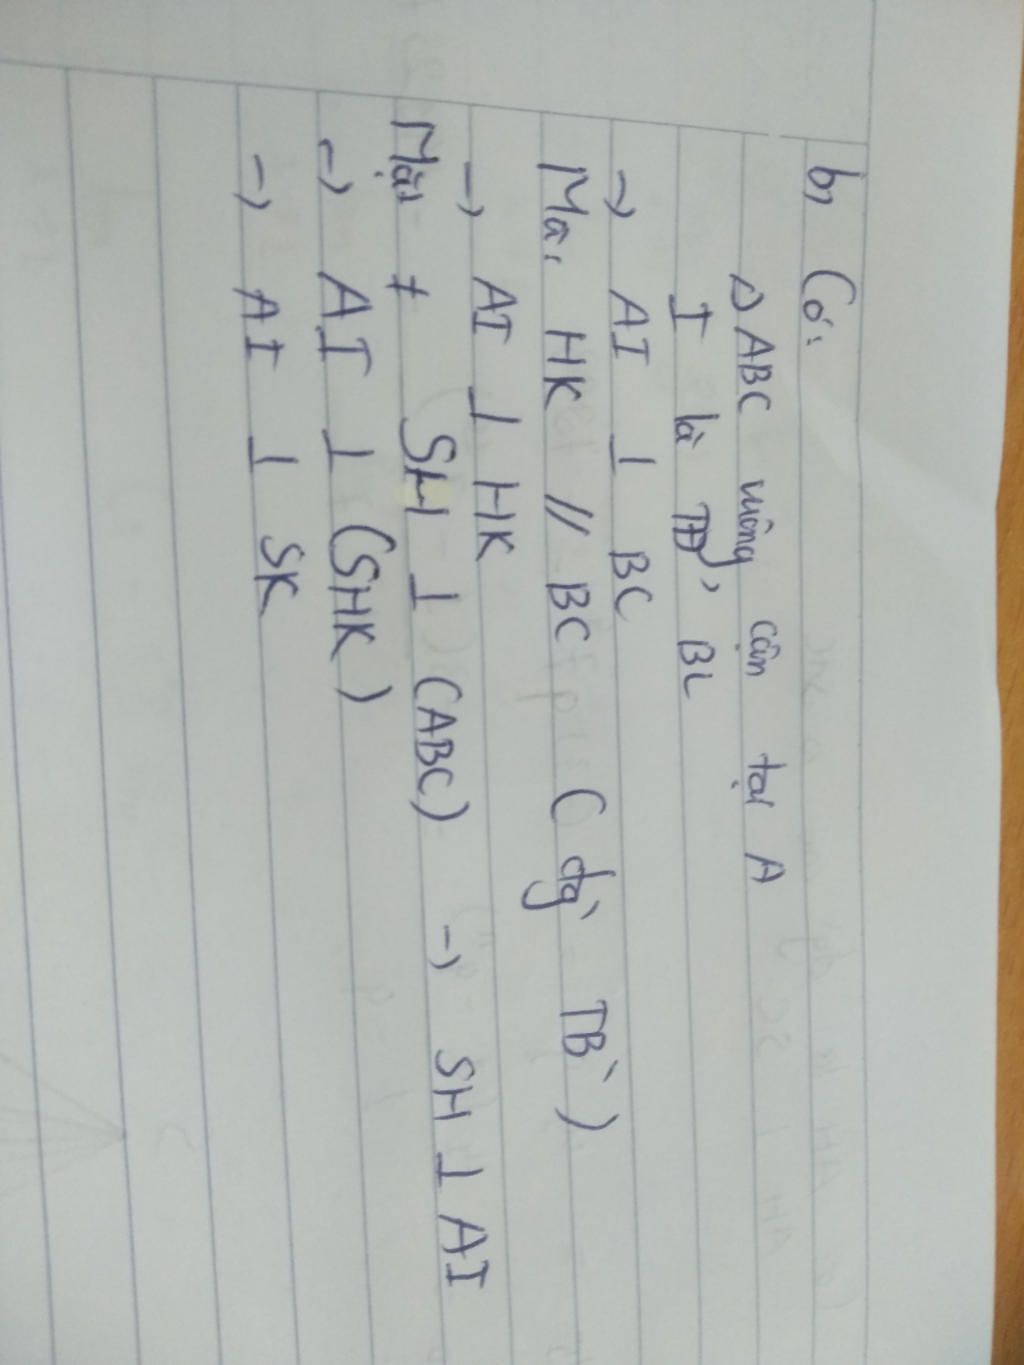 b, Có:
△ABC vuông cân tại A
I là TĐ, BC
→ AI ⊥ BC
Mà, HK // BC (đg` TB`)
→ AI ⊥ HK
Mặt ≠ SH ⊥ (ABC) → SH ⊥ AI
→ AI ⊥ (SHK)
→ AI ⊥ SK